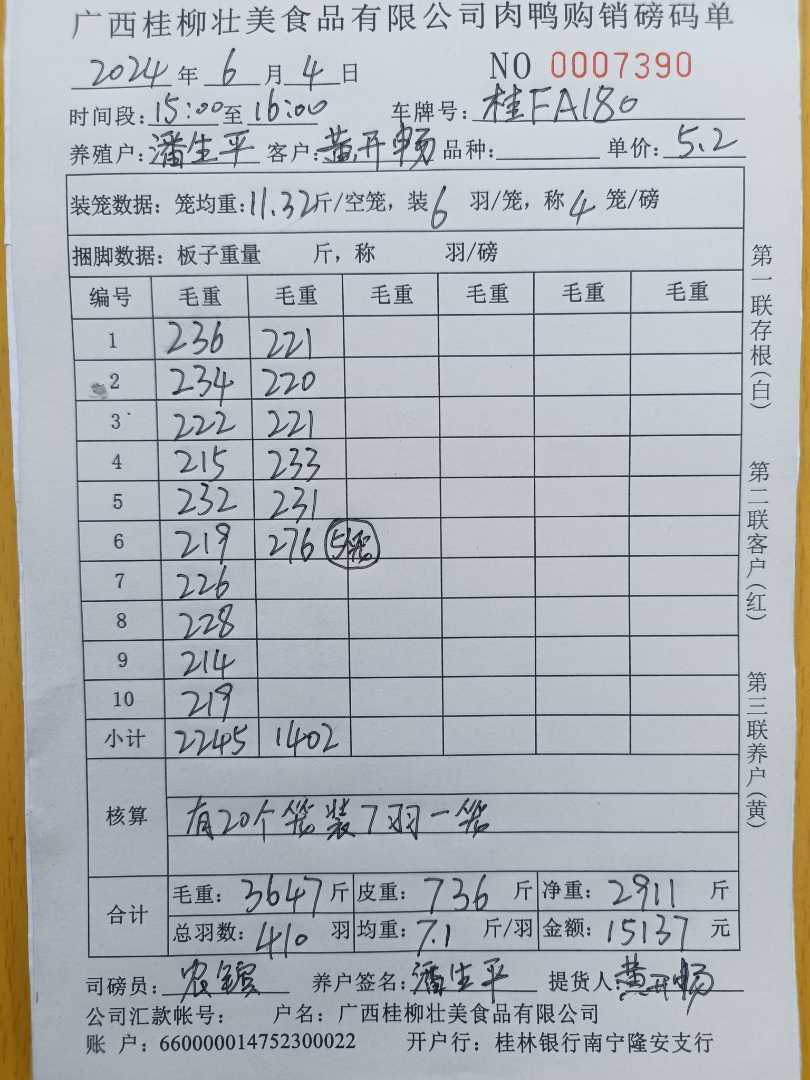 广西桂柳壮美食品有限公司肉鸭购销磅码单
2024 年 6 月 4 日 NO 0007390
时间段: 15:00 至 16:00 车牌号: 桂FA180
养殖户: 潘生平 客户: 黄开畅 品种: 单价: 5.2
装笼数据: 笼均重: 11.32 斤/空笼, 装 6 羽/笼, 称 4 笼/磅
捆脚数据: 板子重量 斤, 称 羽/磅
编号 毛重 毛重 毛重 毛重 毛重 毛重
1 236 221
2 234 220
3 222 221
4 215 233
5 232 231
6 219 276 5笼
7 226
8 228
9 214
10 219
小计 2245 1402
核算 有20个笼装7羽一笼
合计 毛重: 3647 斤 皮重: 736 斤 净重: 2911 斤
总羽数: 410 羽 均重: 7.1 斤/羽 金额: 15137 元
司磅员: 养户签名: 潘生平 提货人: 黄开畅
公司汇款帐号: 户名: 广西桂柳壮美食品有限公司
账 户: 660000014752300022 开户行: 桂林银行南宁隆安支行
第一联存根(白)
第二联客户(红)
第三联养户(黄)